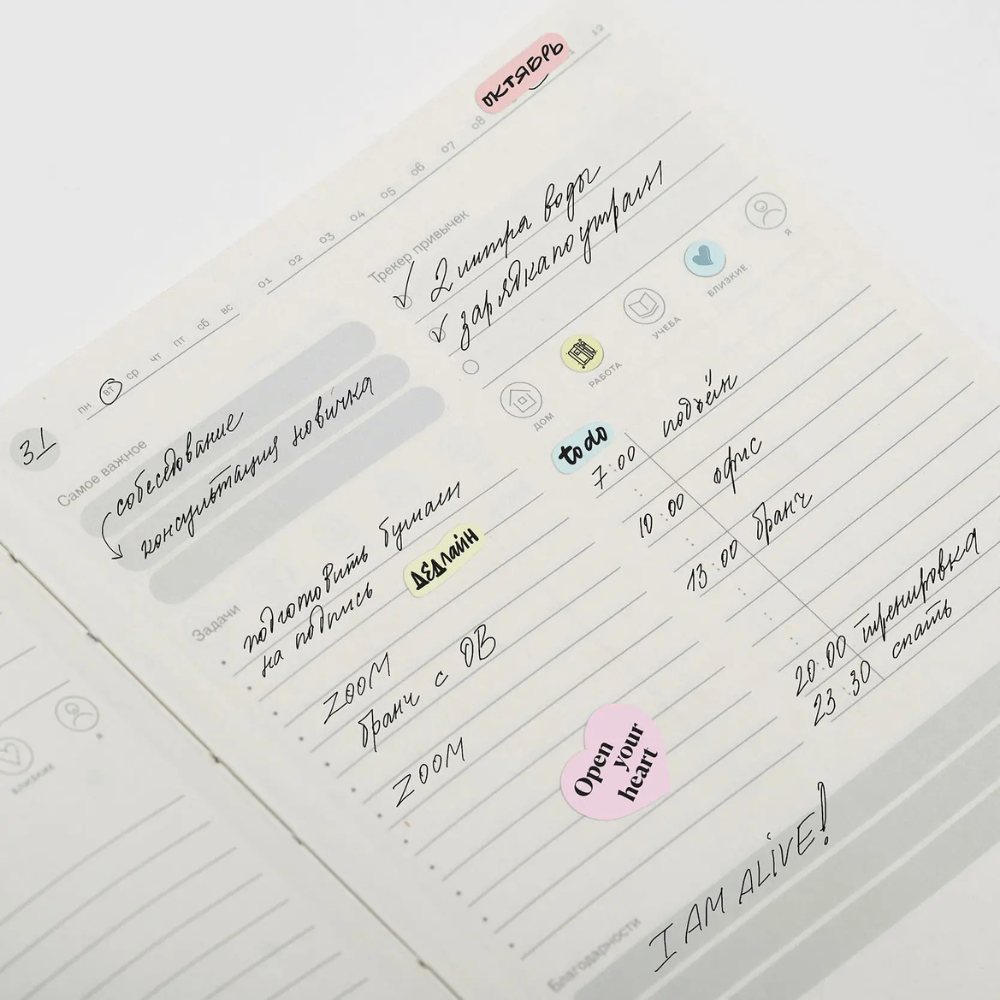 ОКТЯБРЬ
01 02 03 04 05 06 07 08 12
пн вт ср чт пт сб вс
31
Самое важное
собеседование
консультация новичка
Трекер привычек
2 литра воды
зарядка по утрам
ДОМ
РАБОТА
УЧЕБА
БЛИЗКИЕ
Я
Задачи
подготовить бумаги
на подпись
ДЕДлайн
ZOOM
бранч с ОВ
ZOOM
to do
7:00 подъём
10:00 офис
13:00 бранч
20:00 тренировка
23:30 спать
Open
your
heart
Благодарности
I AM ALiVE!
БЛИЗКИЕ
Я